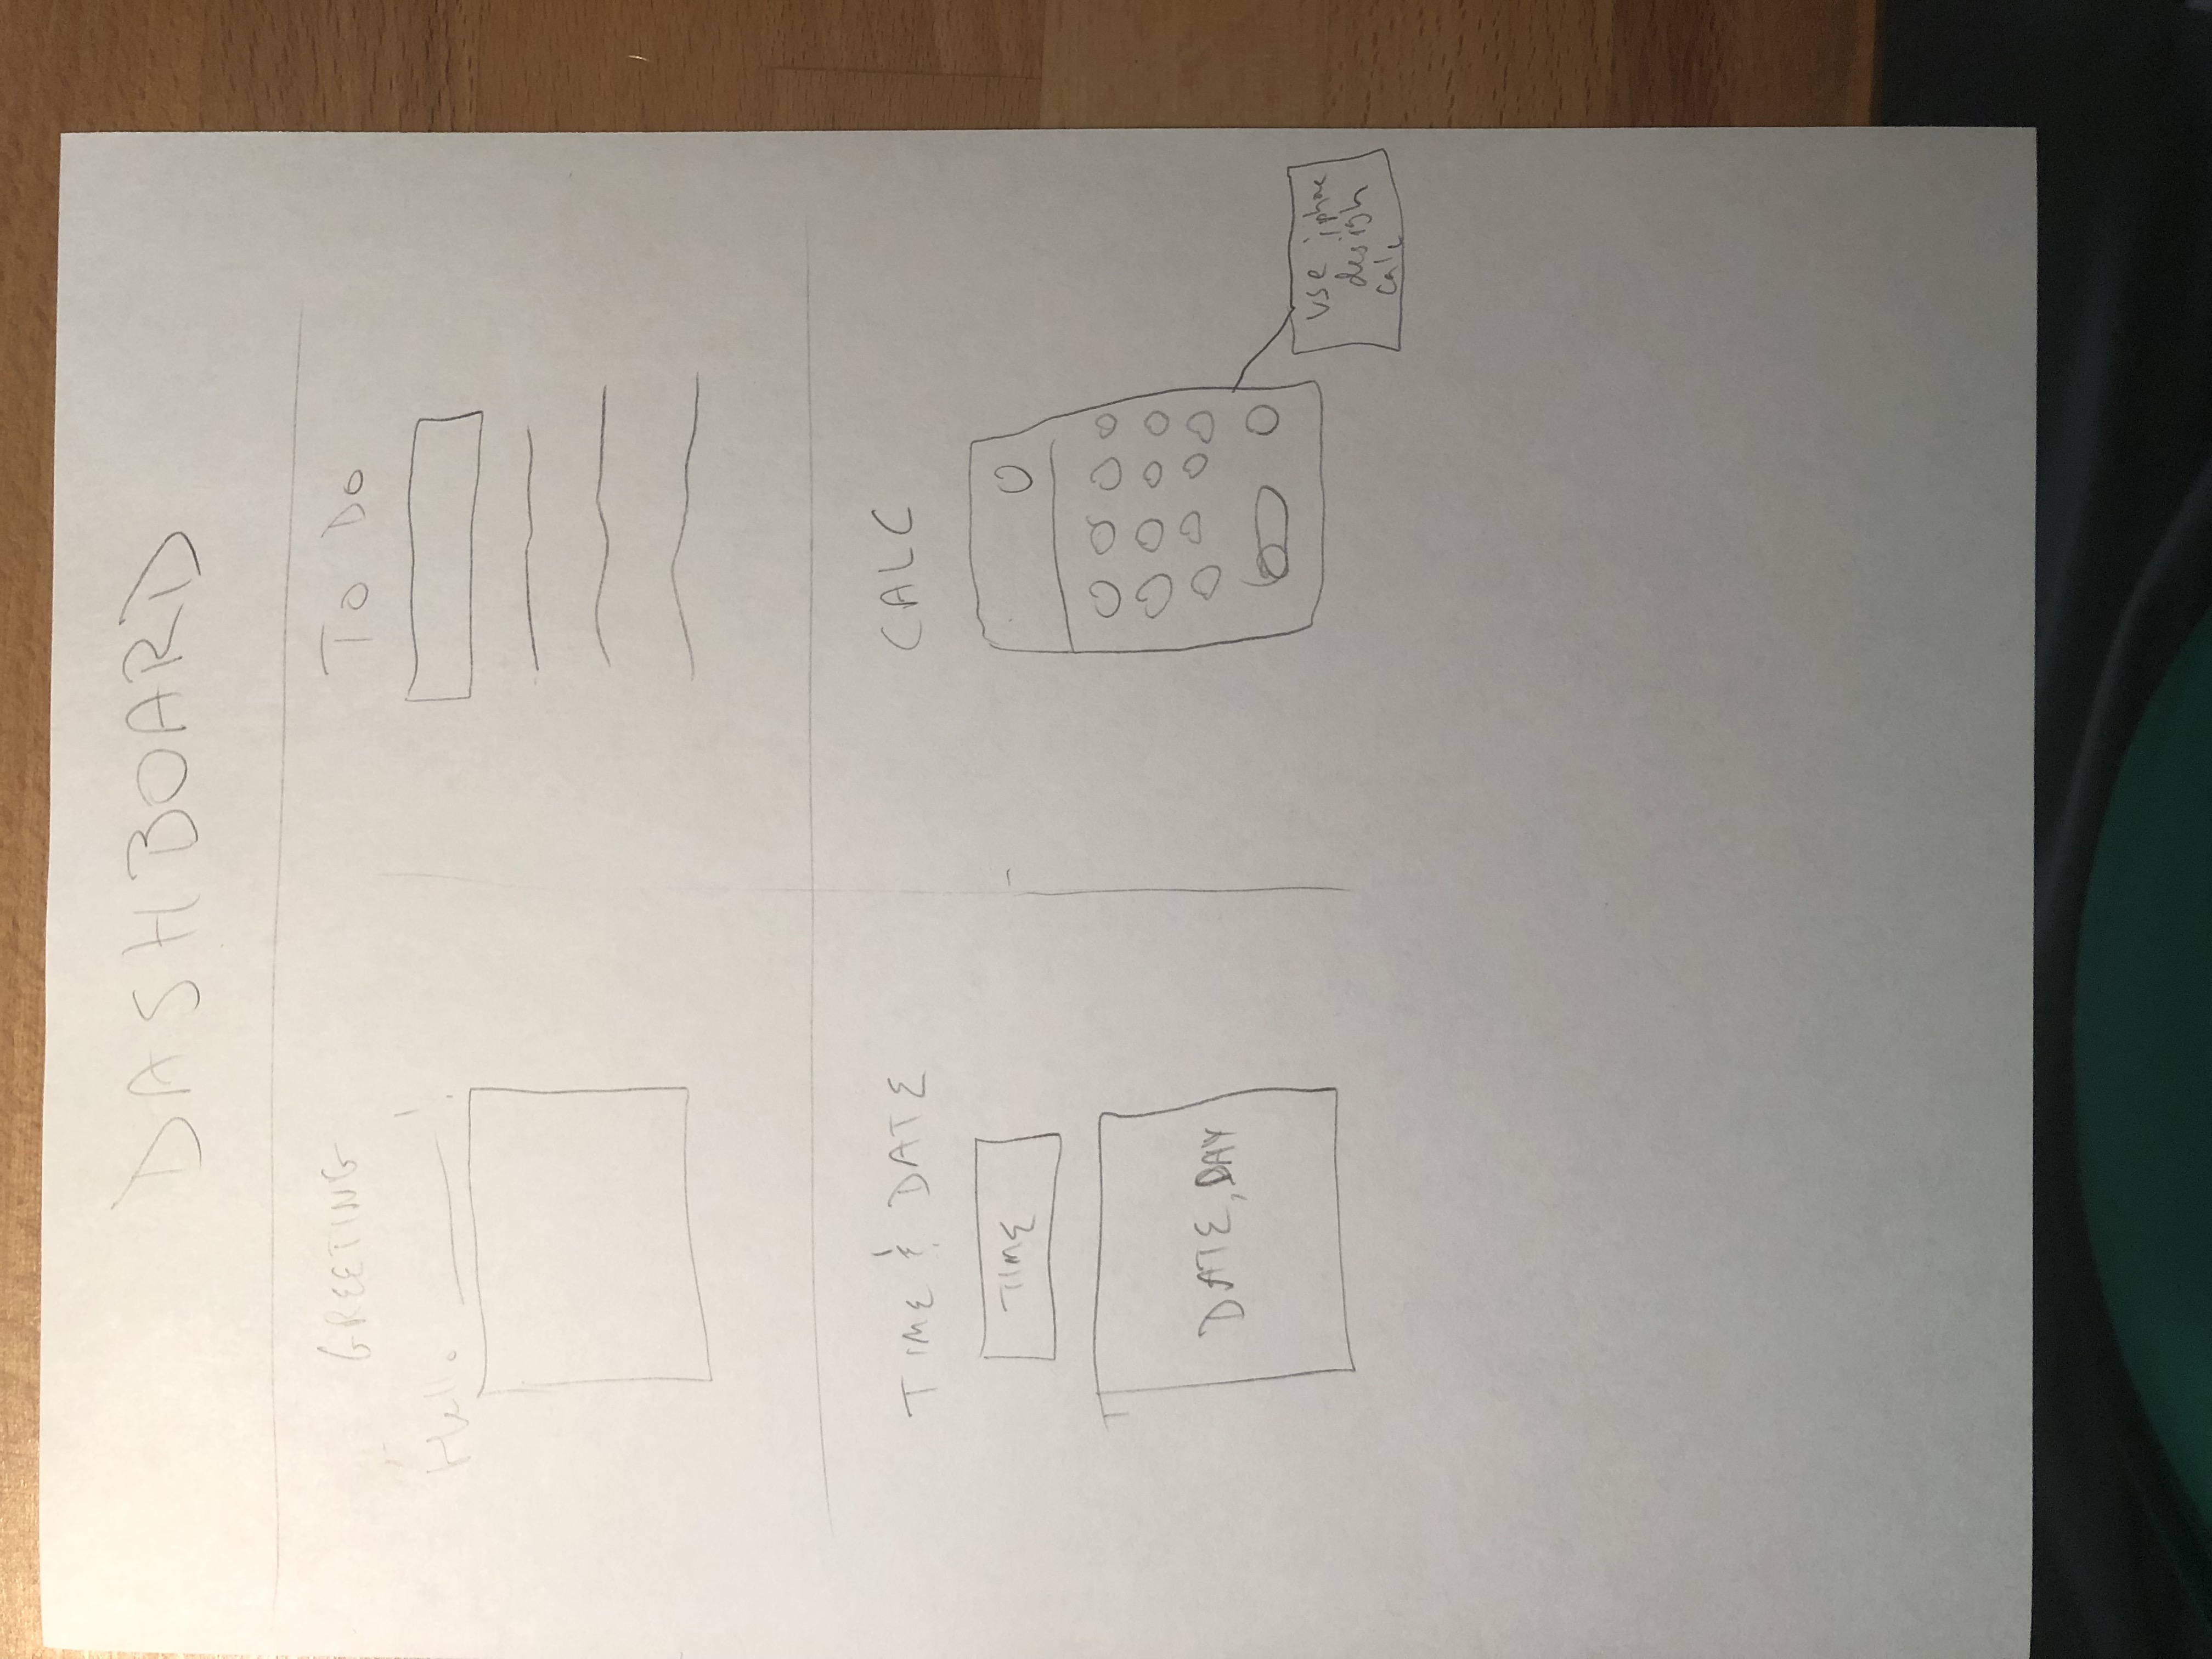 DASHBOARD
GREETING
Hello ______!
TO DO
TIME & DATE
TIME
DATE, DAY
CALC
0
use iphone
design
calc